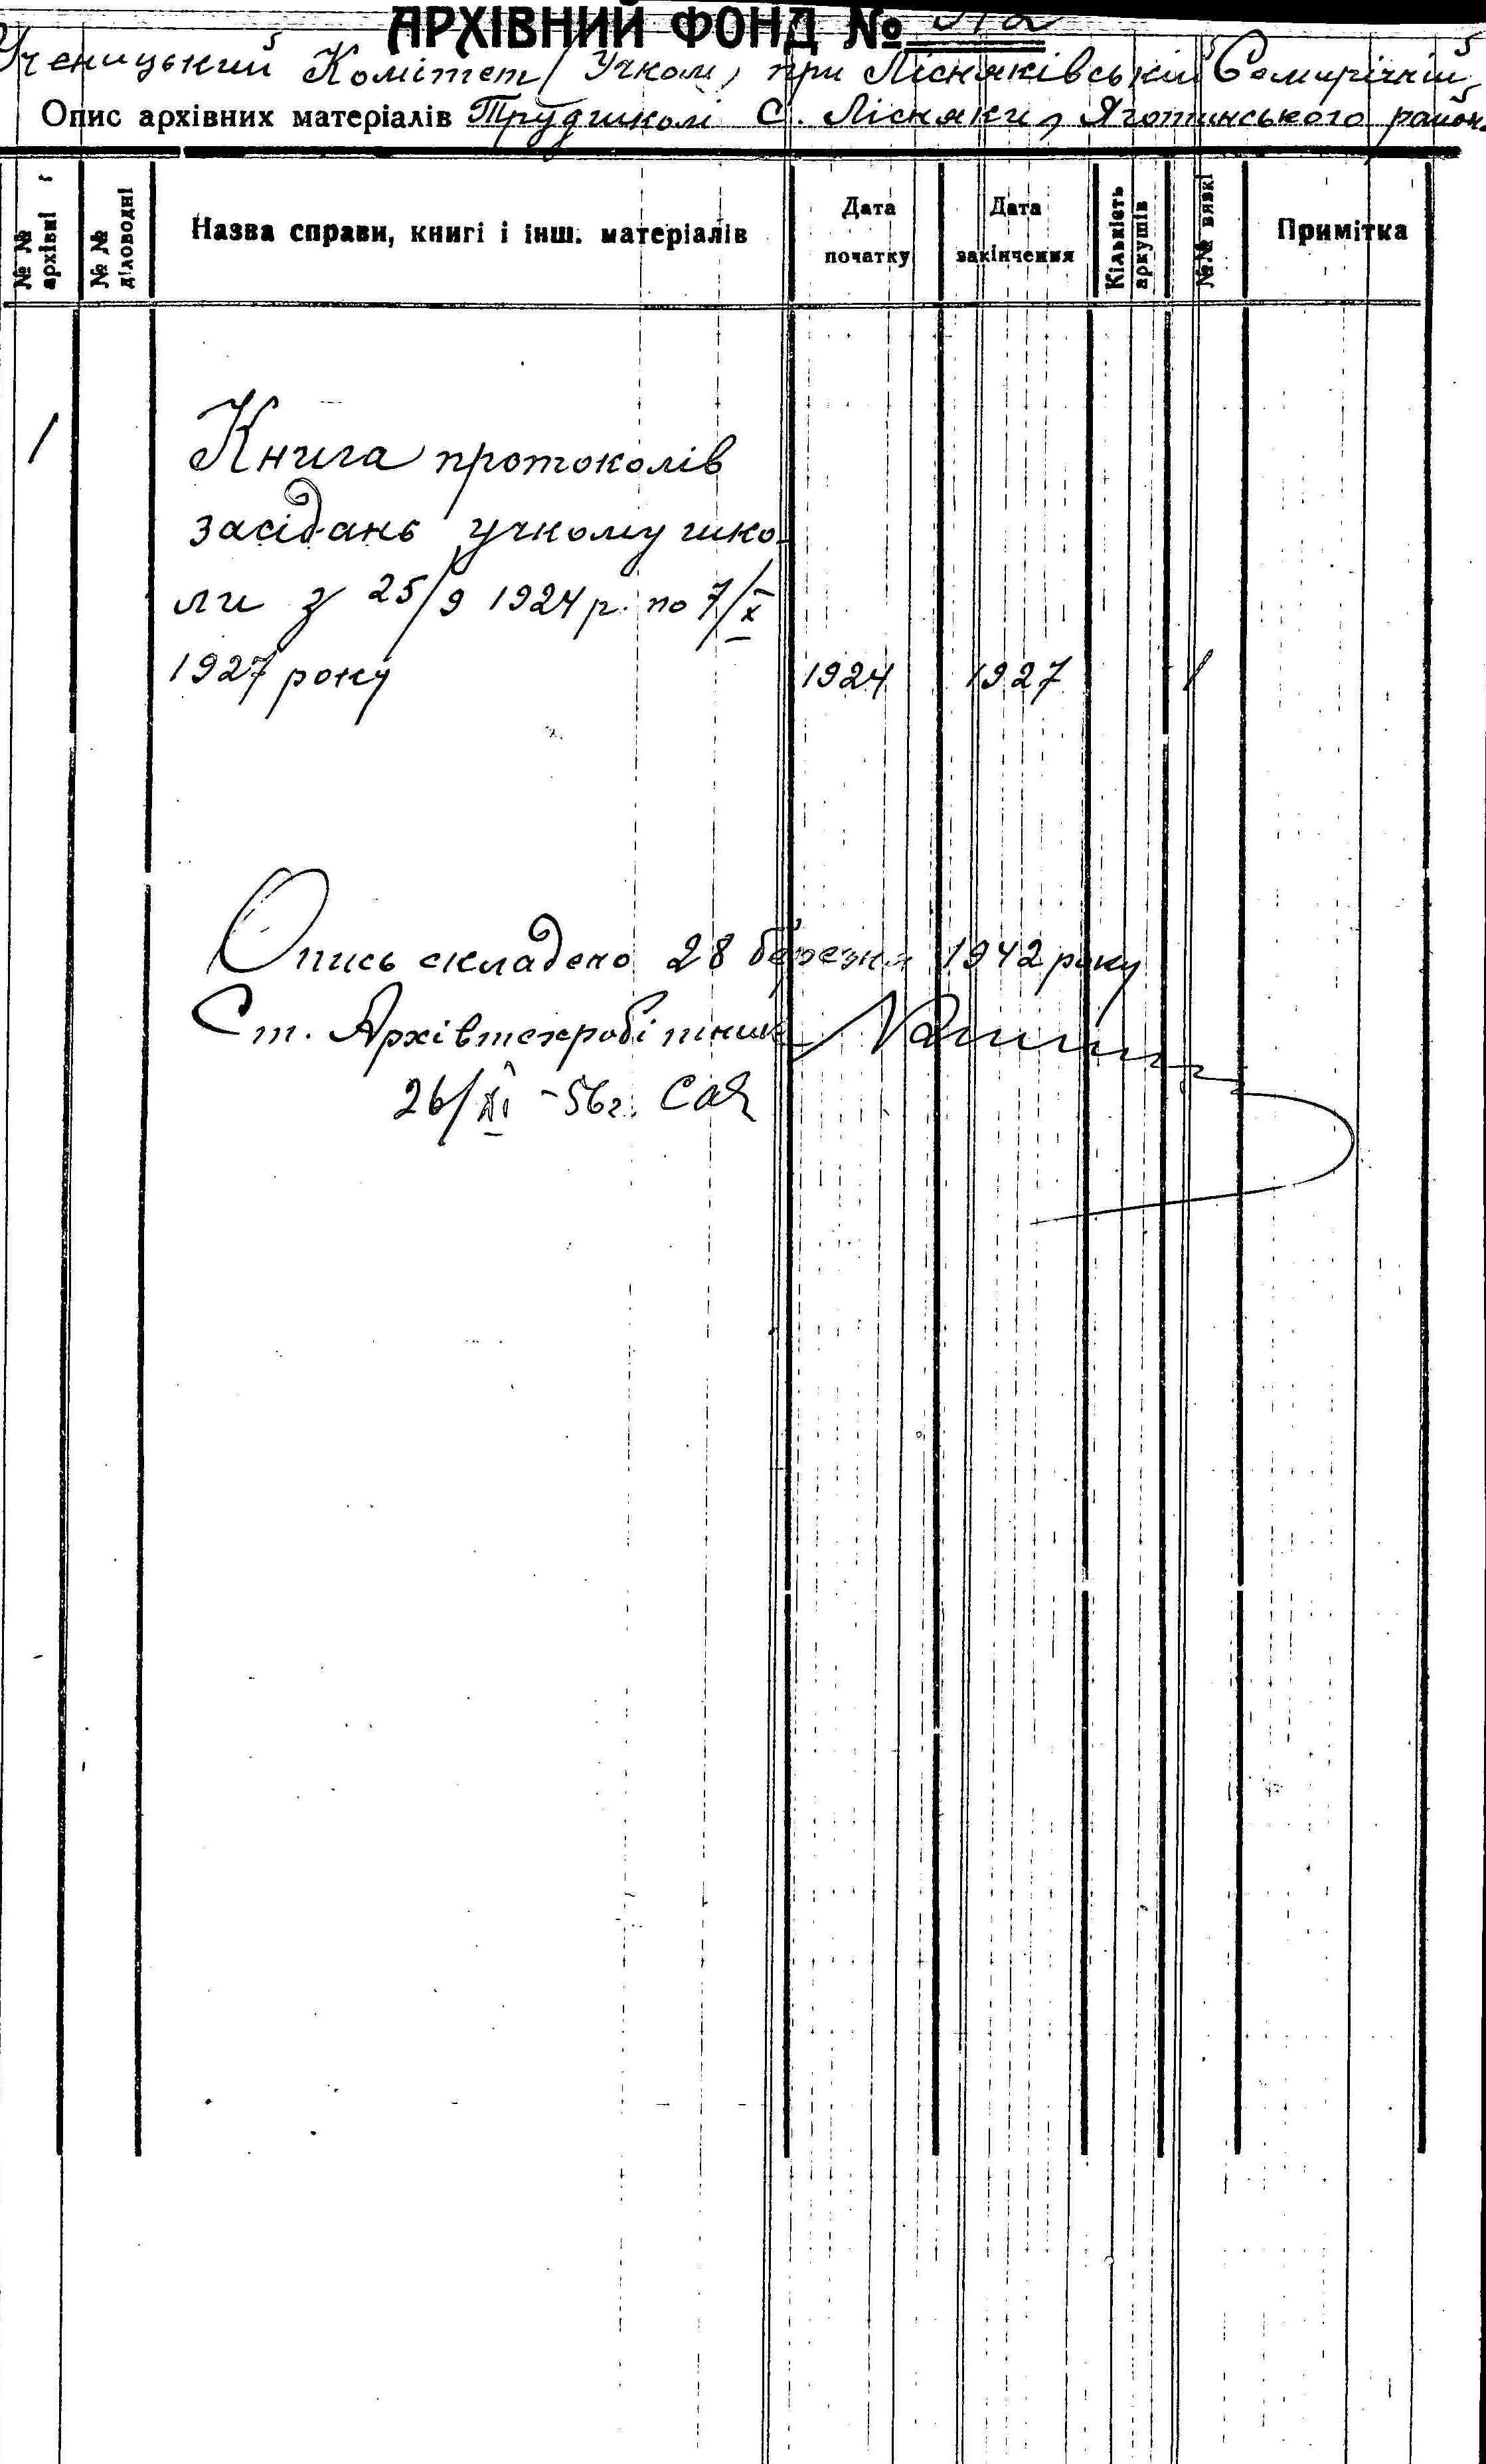 АРХІВНИЙ ФОНД №
Ученицький Комітет / Учком, при Лісняківській Семирічній
Опис архівних матеріалів Трудшколі С. Лісняки, Яготинського район.
№ № архівні
№ № діловодні
Назва справи, книгі і інш. матеріалів
Дата початку
Дата закінчення
Кількість аркушів
№№ вязкі
Примітка
1
Книга протоколів
засідань учкому шко-
ли з 25/9 1924 р. по 7/X
1927 року 1924 1927 1
Опись складено 28 березня 1942 року
Ст. Архівтехробітник
26/XI - 56 г.